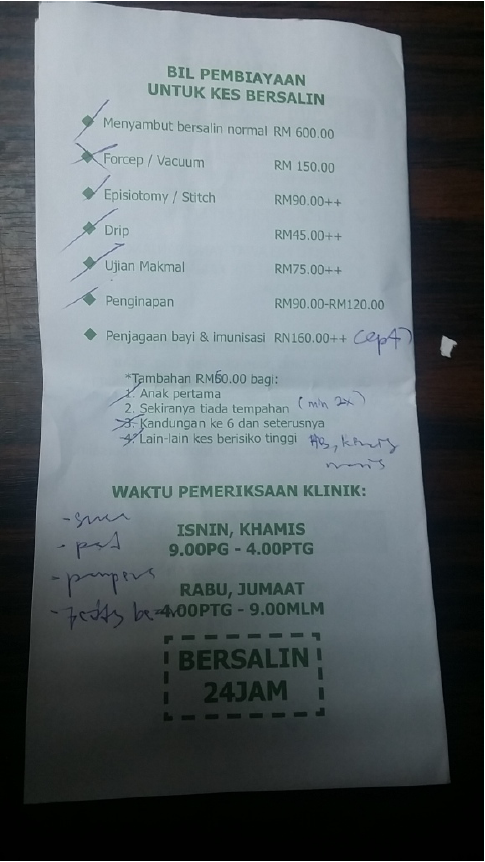 BIL PEMBIAYAAN
UNTUK KES BERSALIN
Menyambut bersalin normal RM 600.00
Forcep / Vacuum RM 150.00
Episiotomy / Stitch RM90.00++
Drip RM45.00++
Ujian Makmal RM75.00++
Penginapan RM90.00-RM120.00
Penjagaan bayi & imunisasi RN160.00++
*Tambahan RM60.00 bagi:
1. Anak pertama
2. Sekiranya tiada tempahan (min 2x)
3. Kandungan ke 6 dan seterusnya
4. Lain-lain kes berisiko tinggi
WAKTU PEMERIKSAAN KLINIK:
ISNIN, KHAMIS
9.00PG - 4.00PTG
- pad
- pampers
RABU, JUMAAT
4.00PTG - 9.00MLM
BERSALIN
24JAM